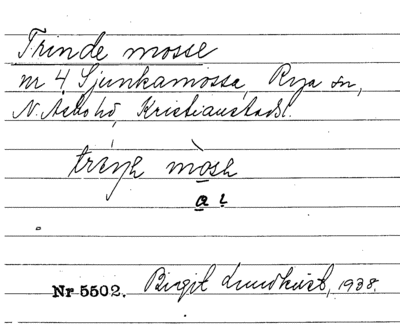 Trinde mosse
nr 4 Ljunkamossa, Rya sn,
N. Åsbo hd, Kristianstads l.
mosh
a ?
Nr 5502. Birgit Lundkvist, 1938.